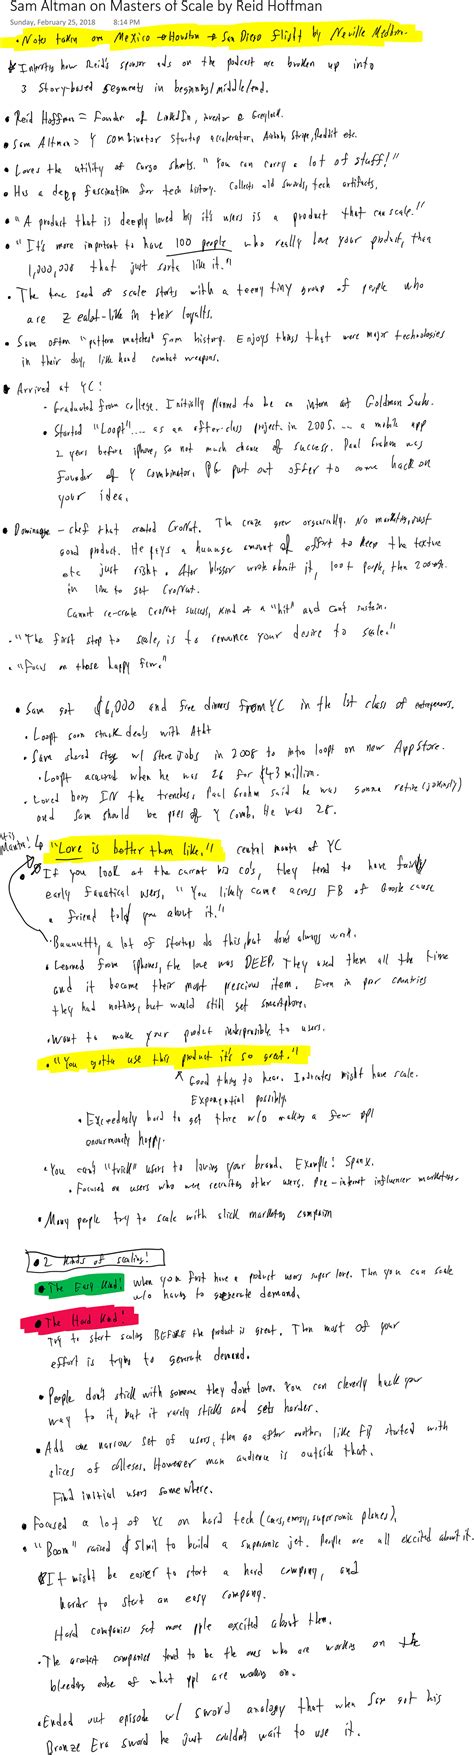 Sam Altman on Masters of Scale by Reid Hoffman
Sunday, February 25, 2018 8:14 PM
• Notes taken on Mexico → Houston → San Diego flight by Neville Medhora.
* Interesting how Reid's sponsor ads on the podcast are broken up into
3 story-based segments in beginning/middle/end.
• Reid Hoffman = Founder of LinkedIn, investor @ Greylock.
• Sam Altman = Y combinator startup accelerator, Airbnb, Stripe, Reddit etc.
• Loves the utility of cargo shorts. "You can carry a lot of stuff!"
• Has a deep fascination for tech history. Collects old swords, tech artifacts.
• "A product that is deeply loved by it's users is a product that can scale."
• "It's more important to have 100 people who really love your product, than
1,000,000 that just sorta like it."
• The true seed of scale starts with a teeny tiny group of people who
are zealot-like in their loyalty.
• Sam often "pattern matches" from history. Enjoys things that were major technologies
in their day, like hand combat weapons.
• Arrived at YC:
• Graduated from college. Initially planned to be an intern at Goldman Sachs.
• Started "Loopt".... as an after-class project in 2005.... a mobile app
2 years before iphone, so not much chance of success. Paul Graham was
founder of Y Combinator. PG put out offer to come hack on
your idea.
• Dominique - chef that created CroNut. The craze grew organically. No marketing, just
good product. He pays a huuuge amount of effort to keep the texture
etc just right. After blogger wrote about it, 100+ people, then 200+
in line to get CroNut.
Cannot re-create CroNut success, kind of a "hit" and cant sustain.
• "The first step to scale, is to renounce your desire to scale."
• "Focus on those happy few."
• Sam got $6,000 and free dinners from YC in the 1st class of entrepreneurs.
• Loopt soon struck deals with At&t
• Sam shared stage w/ Steve Jobs in 2008 to intro loopt on new App Store.
• Loopt acquired when he was 26 for $43 million.
• Loved being IN the trenches. Paul Graham said he was gonna retire (jokingly)
and Sam should be pres of Y Comb. He was 28.
Mantra!
"Love is better than like." central mantra of YC
• If you look at the current big co's, they tend to have fairly
early fanatical users. "You likely came across FB or Google cause
a friend told you about it."
• Buuuuttt, a lot of startups do this, but don't always work.
• Learned from iphones, the love was DEEP. They used them all the time
and it became their most prescious item. Even in poor countries
they had nothing, but would still get smartphone.
• Want to make your product indespensible to users.
• "You gotta use this product it's so great."
Good thing to hear. Indicates might have scale.
Exponential possibly.
• Exceedingly hard to get there w/o making a few ppl
enourmously happy.
• You can't "trick" users to loving your brand. Example: Spanx.
• Focused on users who were recruiting other users. Pre-internet influencer marketing.
• Many people try to scale with slick marketing campaign
• 2 kinds of scaling!
• The Easy Kind! When you first have a product users super love. Then you can scale
w/o having to generate demand.
• The Hard Kind!
Try to start scaling BEFORE the product is great. Then most of your
effort is trying to generate demand.
• People don't stick with someone they don't love. You can cleverly hack your
way to it, but it rarely sticks and gets harder.
• Add one narrow set of users, then go after another, like FB started with
slices of colleges. However main audience is outside that.
Find initial users somewhere.
• Focused a lot of YC on hard tech (cars, energy, supersonic planes).
• "Boom" raised $51mil to build a supersonic jet. People are all excited about it.
* It might be easier to start a hard company, and
harder to start an easy company.
Hard companies get more pple excited about them.
• The greatest companies tend to be the ones who are working on the
bleeding edge of what ppl are working on.
• Ended out episode w/ sword analogy that when Sam got his
Bronze Era sword he just couldn't wait to use it.